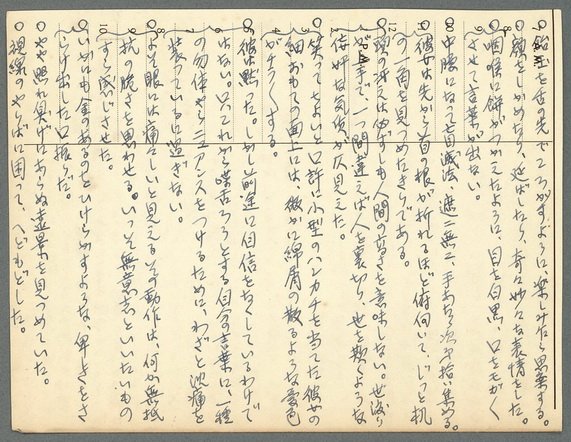 ○飴玉を舌の先でころがすように、楽しみながら思案する。
○顔をしかめたり、延ばしたり、奇々妙々な表情をした。
○咽喉に餅がつかえたように、目を白黒、口をモガ〱
させて言葉が出ない。
○中腰になって盲滅法、遮二無二、手あたり次第拾い集める。
○彼女は先から首の根が折れるほど俯向いて、じっと机
の一角を見つめたきりである。
○頭の冴えは必ずしも人間の高さを意味しない。世渡り
上手で、一つ間違えば人を裏切り、世を欺くような
奸妖な気質が仄見えた。
○笑ってもよいと口許へ小型のハンカチを当てた彼女の
細おもての面上には、微かに綿屑の散るような
がチラ〱する。
○彼は黙った。しかし前途に自信をなくしているわけで
はない。只これから喋ろうとする自分の言葉に、一種
の勿体やらニュアンスをつけるために、わざと沈痛を
装っているに過ぎない。
○よそ眼には痛々しいと見えるその動作は、何か無抵
抗の脆さを思わせる。いっそ無意志といいたいもの
すら感じさせた。
○いかにも金のあるのをひけらかすような、卑しさをさ
らけ出した口振りだ。
○やや照れ臭げにあらぬ虚空を見つめていた。
○視線のやりばに困って、へどもどした。